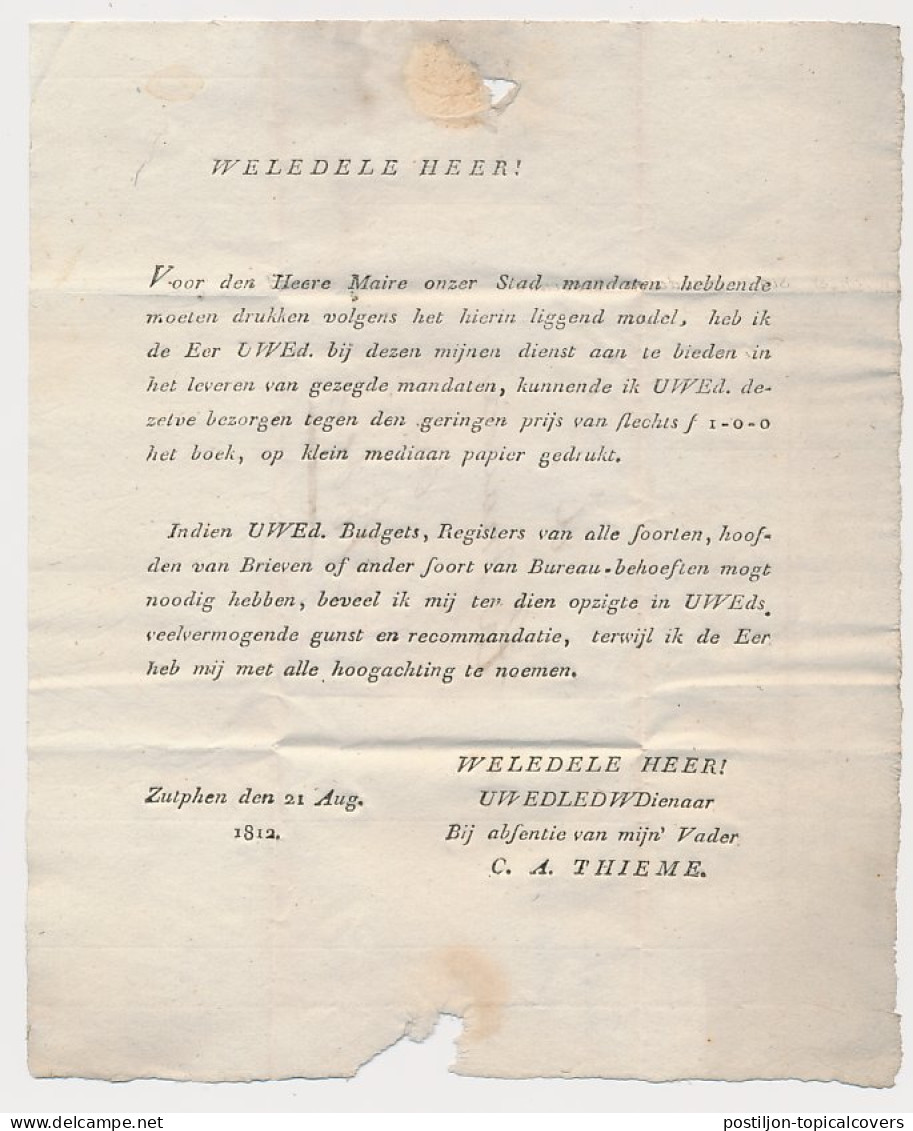 WELEDELE HEER!
Voor den Heere Maire onzer Stad mandaten hebbende
moeten drukken volgens het hierin liggend model, heb ik
de Eer UWEd. bij dezen mijnen dienst aan te bieden in
het leveren van gezegde mandaten, kunnende ik UWEd. de-
zelve bezorgen tegen den geringen prijs van ſlechts ƒ 1-0-0
het boek, op klein mediaan papier gedrukt.
Indien UWEd. Budgets, Registers van alle ſoorten, hoof-
den van Brieven of ander ſoort van Bureau-behoeften mogt
noodig hebben, beveel ik mij ten dien opzigte in UWEds.
veelvermogende gunst en recommandatie, terwijl ik de Eer
heb mij met alle hoogachting te noemen.
WELEDELE HEER!
Zutphen den 21 Aug. UWEDLEDWDienaar
1812. Bij abſentie van mijn' Vader
C. A. THIEME.
postiljon-topicalcovers